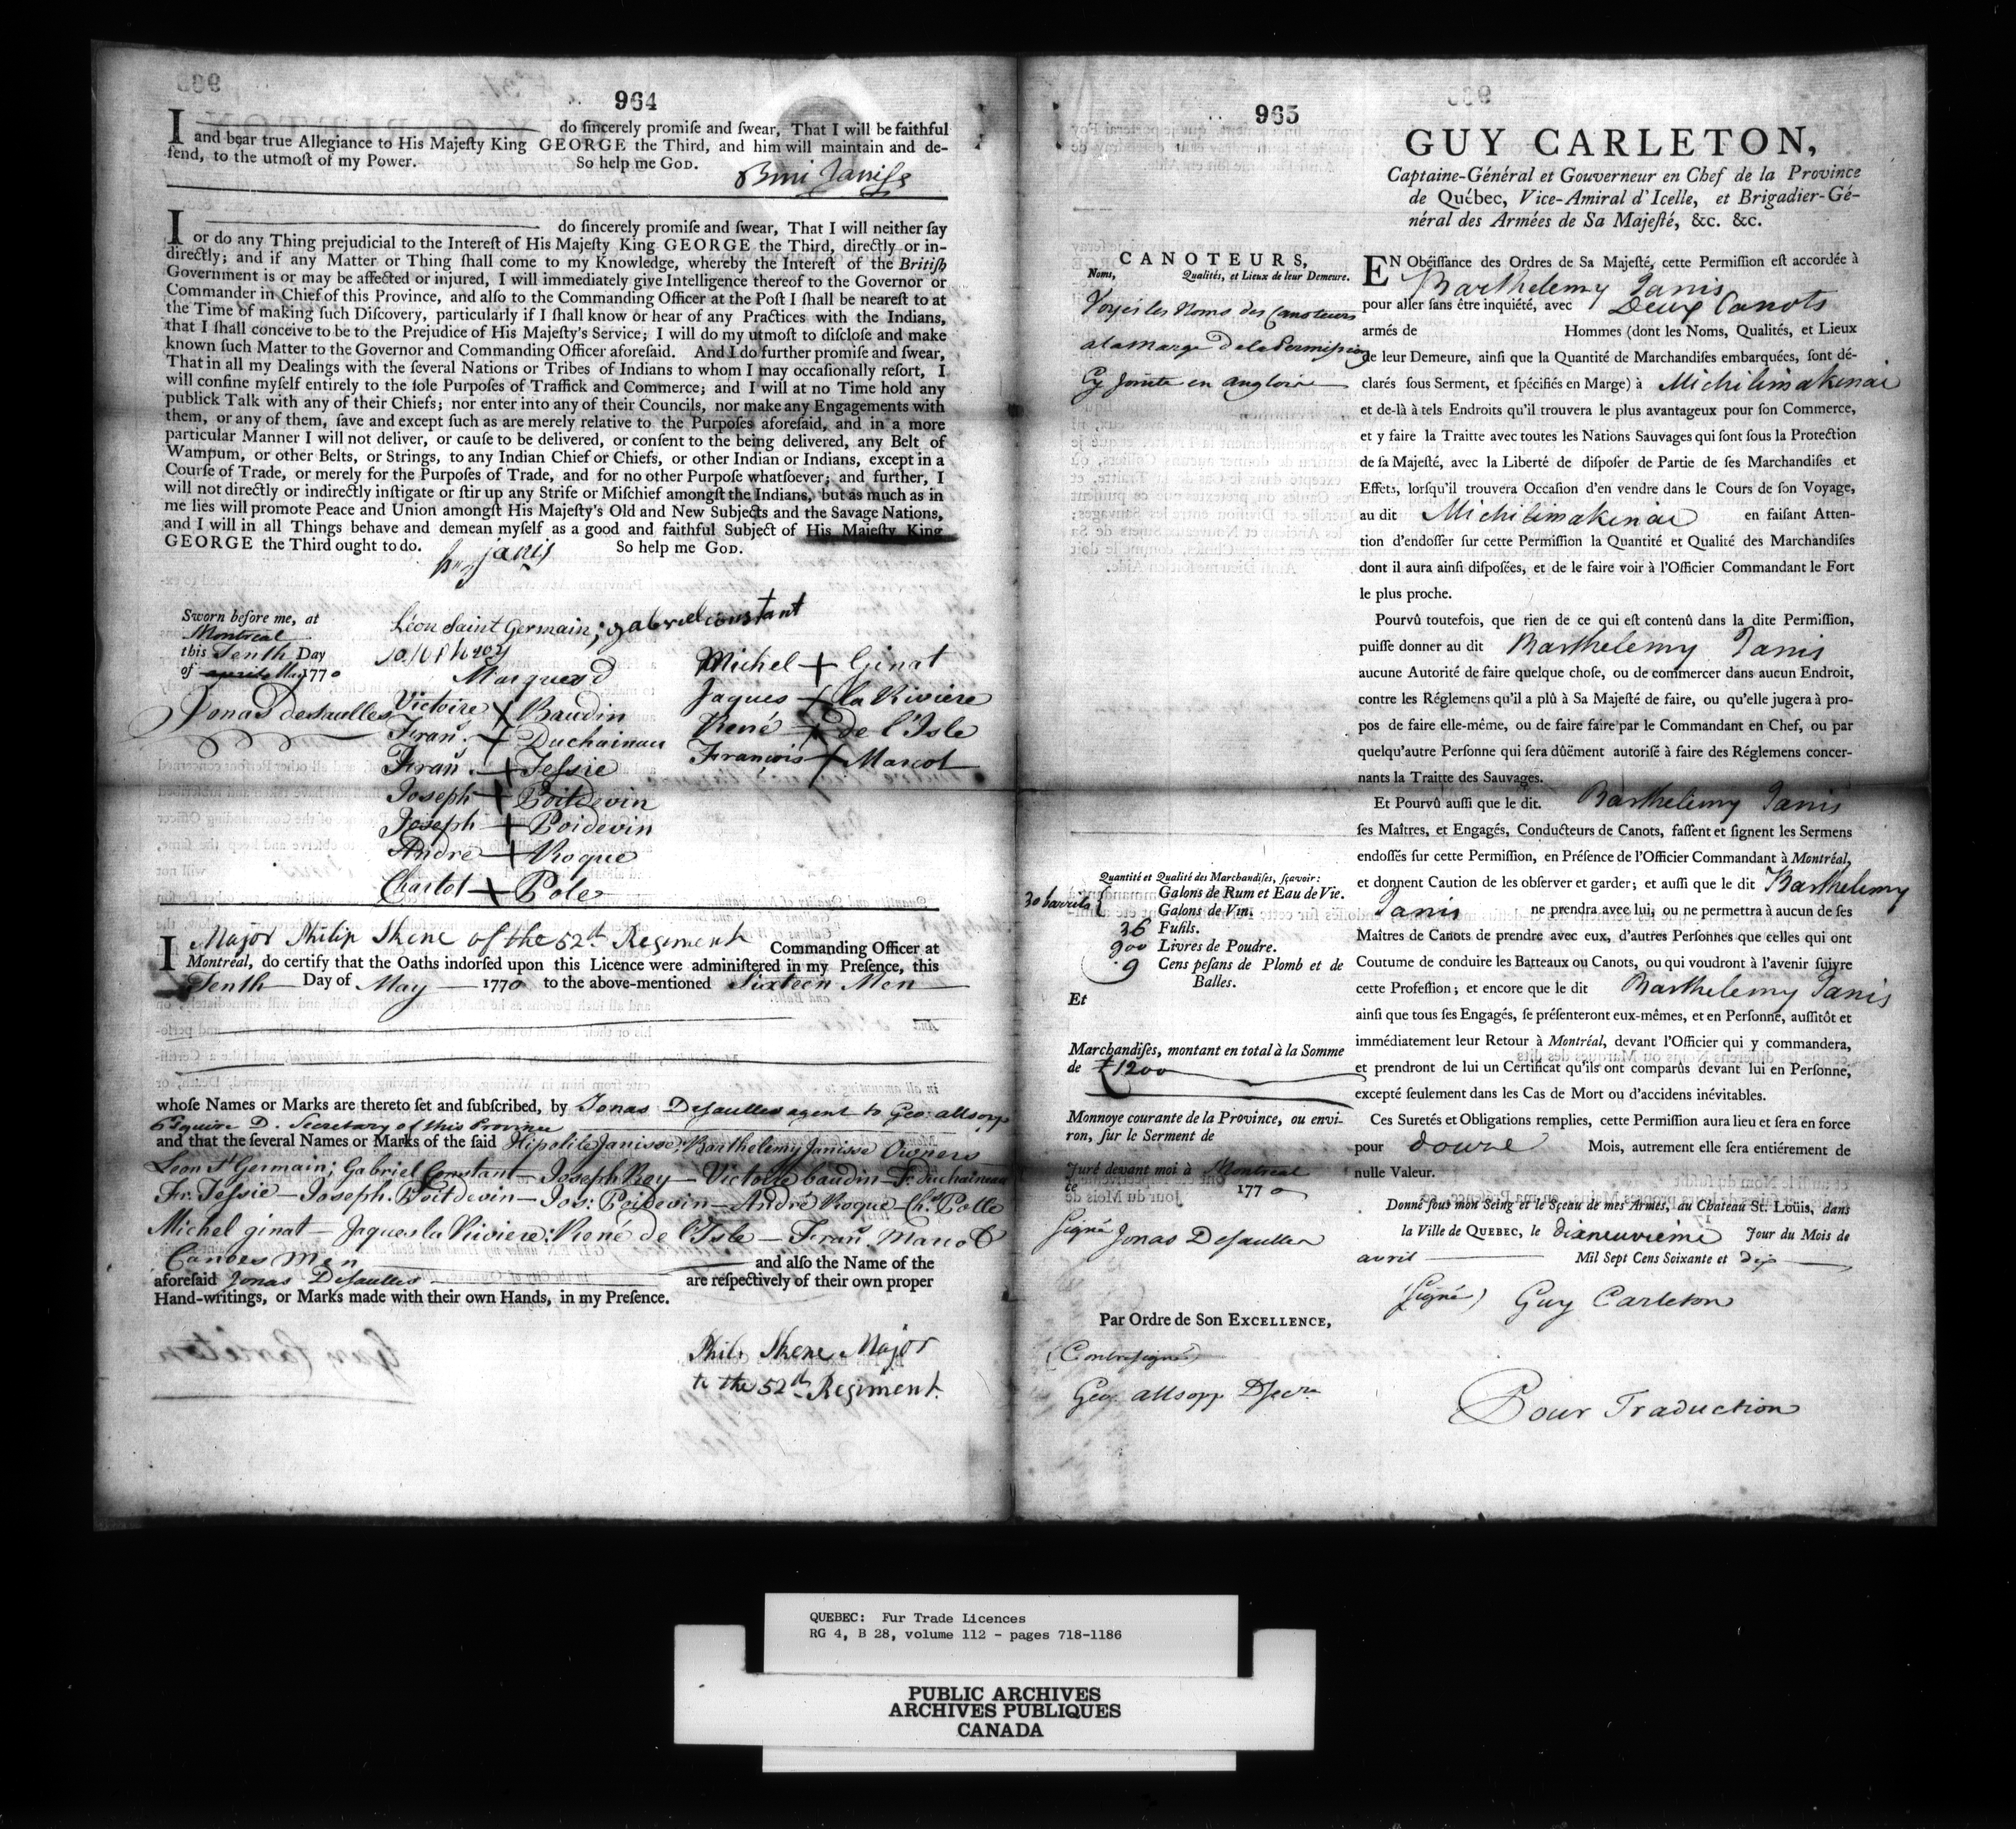 964
I do sincerely promiſe and ſwear, That I will be faithful
and bear true Allegiance to His Majeſty King GEORGE the Third, and him will maintain and de-
fend, to the utmoſt of my Power. So help me GOD.
I do sincerely promiſe and ſwear, That I will neither ſay
or do any Thing prejudicial to the Intereſt of His Majeſty King GEORGE the Third, directly or in-
directly; and if any Matter or Thing ſhall come to my Knowledge, whereby the Intereſt of the Britiſh
Government is or may be affected or injured, I will immediately give Intelligence thereof to the Governor or
Commander in Chief of this Province, and alſo to the Commanding Officer at the Poſt I ſhall be neareſt to at
the Time of making ſuch Diſcovery, particularly if I ſhall know or hear of any Practices with the Indians,
that I ſhall conceive to be to the Prejudice of His Majeſty's Service; I will do my utmoſt to diſcloſe and make
known ſuch Matter to the Governor and Commanding Officer aforeſaid. And I do further promiſe and ſwear,
That in all my Dealings with the ſeveral Nations or Tribes of Indians to whom I may occaſionally reſort, I
will confine myſelf entirely to the ſole Purpoſes of Traffick and Commerce; and I will at no Time hold any
publick Talk with any of their Chiefs; nor enter into any of their Councils, nor make any Engagements with
them, or any of them, ſave and except ſuch as are merely relative to the Purpoſes aforeſaid, and in a more
particular Manner I will not deliver, or cauſe to be delivered, or conſent to the being delivered, any Belt of
Wampum, or other Belts, or Strings, to any Indian Chief or Chiefs, or other Indian or Indians, except in a
Courſe of Trade, or merely for the Purpoſes of Trade, and for no other Purpoſe whatſoever; and further, I
will not directly or indirectly inſtigate or ſtir up any Strife or Miſchief amongſt the Indians, but as much as in
me lies will promote Peace and Union amongſt His Majeſty's Old and New Subjects and the Savage Nations,
and I will in all Things behave and demean myſelf as a good and faithful Subject of His Majeſty King
GEORGE the Third ought to do. So help me GOD.
janis
Sworn before me, at
Montreal
this Tenth Day
of May 1770
Jonas desaulles
Léon Saint Germain; gabriel constant
Marqued
Victoire + Baudin
Fran. + Duchainau
Fran. + Jessie
Joseph + Poitdevin
Joseph + Poidevin
André + Roque
Charlot + Pole
Michel + Ginat
Jaques + la Riviere
René + de l'Isle
François + Marcot
I Major Philip Skene of the 52d. Regiment Commanding Officer at
Montréal, do certify that the Oaths indorſed upon this Licence were adminiſtered in my Preſence, this
Tenth Day of May 1770 to the above-mentioned Sixteen Men
whoſe Names or Marks are thereto ſet and ſubſcribed, by Jonas Desaulles agent to Geo: allsopp
Esquire D. Secretary of this Province
and that the ſeveral Names or Marks of the ſaid Hipolite Janisse; Barthelemy Janisse Owners
Leon St Germain; Gabriel Constant — Joseph Roy — Victoire baudin — Fr. duchaineau
Fr. Jessie — Joseph. Poitdevin — Jos: Poidevin — André Roque — Ch. Polle
Michel ginat — Jaques la Riviere; René de l'Isle — Fran. Marcot
Canoes Men and alſo the Name of the
aforeſaid Jonas Desaulles are reſpectively of their own proper
Hand-writings, or Marks made with their own Hands, in my Preſence.
Phil. Skene Major
to the 52d. Regiment.
965
GUY CARLETON,
Captaine-Général et Gouverneur en Chef de la Province
de Québec, Vice-Amiral d'Icelle, et Brigadier-Gé-
néral des Armées de Sa Majeſté, &c. &c.
CANOTEURS,
Noms, Qualités, et Lieux de leur Demeure.
Voyés les Noms des Canoteurs
a la marge De la Permission
Cy Jointe en angloise
EN Obéiſſance des Ordres de Sa Majeſté, cette Permiſſion eſt accordée à
Barthelemy Janis
pour aller ſans être inquiété, avec Deux Canots
armés de Hommes (dont les Noms, Qualités, et Lieux
de leur Demeure, ainſi que la Quantité de Marchandiſes embarquées, ſont dé-
clarés ſous Serment, et ſpécifiés en Marge) à Michilimakinai
et de-là à tels Endroits qu'il trouvera le plus avantageux pour ſon Commerce,
et y faire la Traitte avec toutes les Nations Sauvages qui ſont ſous la Protection
de ſa Majeſté, avec la Liberté de diſpoſer de Partie de ſes Marchandiſes et
Effets, lorſqu'il trouvera Occaſion d'en vendre dans le Cours de ſon Voyage,
au dit Michilimakinai en faiſant Atten-
tion d'endoſſer ſur cette Permiſſion la Quantité et Qualité des Marchandiſes
dont il aura ainſi diſpoſées, et de le faire voir à l'Officier Commandant le Fort
le plus proche.
Pourvû toutefois, que rien de ce qui eſt contenû dans la dite Permiſſion,
puiſſe donner au dit Barthelemy Janis
aucune Autorité de faire quelque choſe, ou de commercer dans aucun Endroit,
contre les Réglemens qu'il a plû à Sa Majeſté de faire, ou qu'elle jugera à pro-
pos de faire elle-même, ou de faire faire par le Commandant en Chef, ou par
quelqu'autre Perſonne qui ſera dûëment autoriſé à faire des Réglemens concer-
nants la Traitte des Sauvages.
Et Pourvû auſſi que le dit. Barthelemy Janis
ſes Maîtres, et Engagés, Conducteurs de Canots, faſſent et ſignent les Sermens
endoſſés ſur cette Permiſſion, en Préſence de l'Officier Commandant à Montréal,
et donnent Caution de les obſerver et garder; et auſſi que le dit Barthelemy
Janis ne prendra avec lui, ou ne permettra à aucun de ſes
Maîtres de Canots de prendre avec eux, d'autres Perſonnes que celles qui ont
Coutume de conduire les Batteaux ou Canots, ou qui voudront à l'avenir ſuivre
cette Profeſſion; et encore que le dit Barthelemy Janis
ainſi que tous ſes Engagés, ſe préſenteront eux-mêmes, et en Perſonne, auſſitôt et
immédiatement leur Retour à Montréal, devant l'Officier qui y commandera,
et prendront de lui un Certificat qu'ils ont comparûs devant lui en Perſonne,
excepté ſeulement dans les Cas de Mort ou d'accidens inévitables.
Ces Suretés et Obligations remplies, cette Permiſſion aura lieu et ſera en force
pour douze Mois, autrement elle ſera entiérement de
nulle Valeur.
Donné ſous mon Seing et le Sçeau de mes Armes, au Chateau St. Loüis, dans
la Ville de QUEBEC, le dixneuvieme Jour du Mois de
avril Mil Sept Cens Soixante et dix
(signé) Guy Carleton
Pour Traduction
Quantité et Qualité des Marchandiſes, ſçavoir:
30 barrils { Galons de Rum et Eau de Vie.
Galons de Vin.
36 Fuſils.
900 Livres de Poudre.
9 Cens peſans de Plomb et de
Balles.
Et
Marchandiſes, montant en total à la Somme
de £1200
Monnoye courante de la Province, ou envi-
ron, ſur le Serment de
Juré devant moi à Montreal
ce Jour du Mois de 1770
Signé Jonas Desaulles
Par Ordre de Son EXCELLENCE,
(Contresigné)
Geo. allsopp D Secre
QUEBEC: Fur Trade Licences
RG 4, B 28, volume 112 - pages 718-1186
PUBLIC ARCHIVES
ARCHIVES PUBLIQUES
CANADA